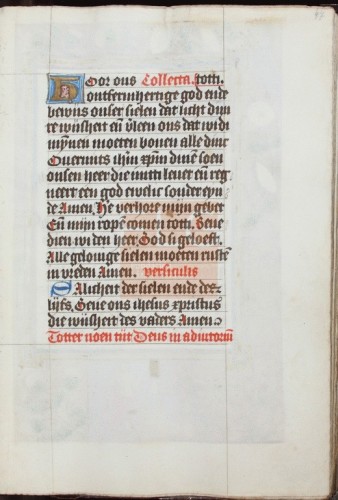 Hoor ons Collecta. totti.
ontfermhertige god ende
onser sielen dat licht dijn
te wijsheit en̄ ons dat wi di
mynnen moeten boven alle dinc
Overmits ihm̄ xp̄m dinē soen
onsen heer die mitti levet en̄ reg
neert een god ewelic sonder eyn
de Amen. He verhore mijn gebet
En̄ mijn ropē comen totti. Bene
dien wi den heer, God si geloeft.
Alle gelovige sielen moeten rustē
in vreden Amen. versiculus
Salicheit der sielen ende des
lijfs, Geve ons ihesus xpristus
die wijsheit des vaders Amen.
Totter noen tijt Deus in adiutoriū